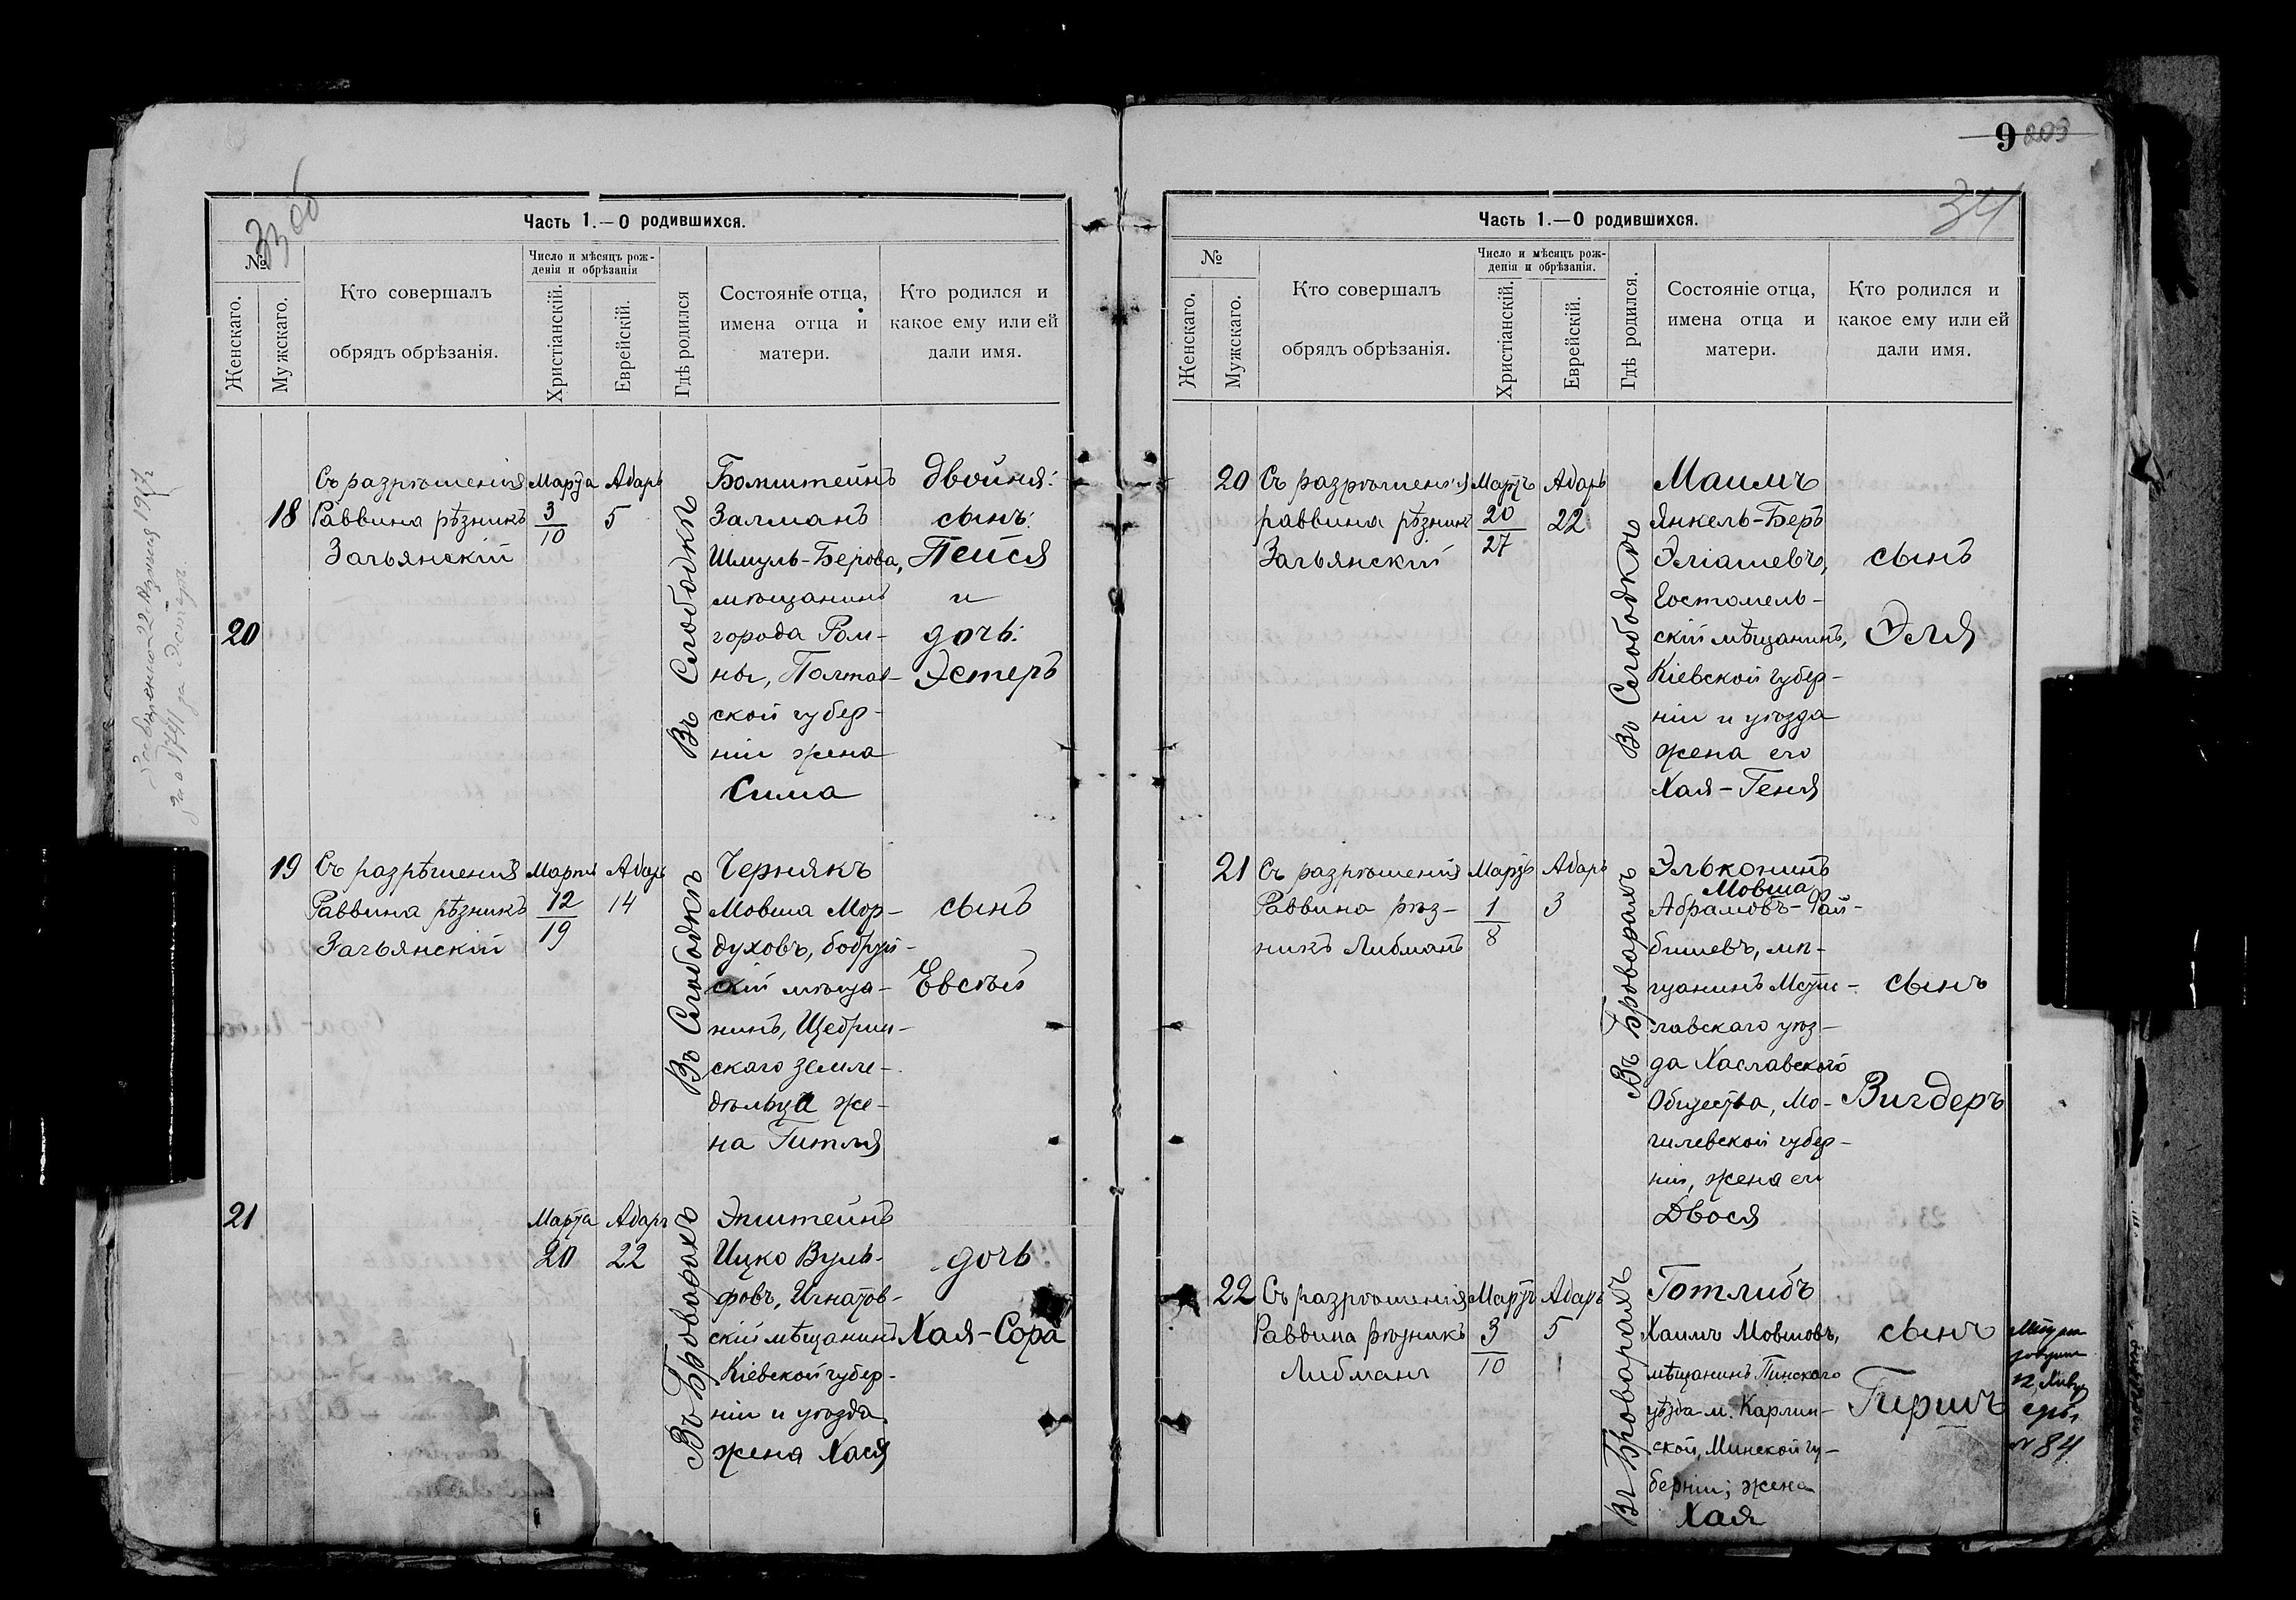 33 об
Часть 1.—О родившихся.
№
Женскаго.
Мужскаго.
Кто совершалъ
обрядъ обрѣзанія.
Число и мѣсяцъ рож-
денія и обрѣзанія
Христіанскій.
Еврейскій.
Гдѣ родился
Состояніе отца,
имена отца и
матери.
Кто родился и
какое ему или ей
дали имя.
18
20
Съ разрѣшенія
Раввина рѣзникъ
Зачьянскій
Марта
3
10
Адаръ
5
Въ Слободкѣ
Бомштейнъ
Залманъ
Шмуль-Берова,
мѣщанинъ
города Ром-
ны, Полтав-
ской губер-
ніи жена
Сима
двойня:
сынъ:
Пейся
и
дочь:
Эстеръ
19
Съ разрѣшенія
Раввина рѣзникъ
Зачьянскій
Марта
12
19
Адаръ
14
Въ Слободкѣ
Чернякъ
Мовша Мор-
духовъ, бобруй-
скій мѣща-
нинъ, Щедрин-
скаго земле-
дѣльца же-
на Гитля
сынъ
Евсѣй
21
Марта
20
Адаръ
22
Въ Броварахъ
Эпштейнъ
Ицко Вуль-
фовъ, Игнатов-
скій мѣщанинъ
Кіевской губер-
ніи и уѣзда
жена Хася
дочь
Хая-Сора
9
203
34
Часть 1.—О родившихся.
№
Женскаго.
Мужскаго.
Кто совершалъ
обрядъ обрѣзанія.
Число и мѣсяцъ рож-
денія и обрѣзанія.
Христіанскій.
Еврейскій.
Гдѣ родился.
Состояніе отца,
имена отца и
матери.
Кто родился и
какое ему или ей
дали имя.
20
Съ разрѣшенія
раввина рѣзникъ
Зачьянскій
Мартъ
20
27
Адаръ
22
Въ Слободкѣ
Маимъ
Янкель-Беръ
Эліашевъ,
Гостомель-
скій мѣщанинъ,
Кіевской губер-
ніи и уѣзда
жена его
Хая-Геня
сынъ
Эля
21
Съ разрѣшенія
Раввина рѣз-
никъ Либманъ
Мартъ
1
8
Адаръ
3
Въ Броварахъ
Эльконинъ
Мовша
Абрамовъ-Фай-
бишевъ, мѣ-
щанинъ Мсти-
лавскаго уѣз-
да Хаславскаго
Общества, Мо-
гилевской губер-
ніи, жена его
Двося
сынъ
Вигдеръ
22
Съ разрѣшенія
Раввина рѣзникъ
Либманъ
Мартъ
3
10
Адаръ
5
Въ Броварахъ
Готлибъ
Хаимъ Мовшовъ,
мѣщанинъ Пинскаго
уѣзда м. Карлин-
ской, Минской гу-
берніи; жена
Хая
сынъ
Гиршъ
№ 84